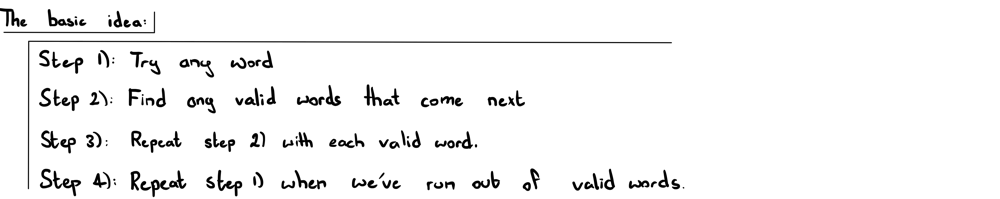 The basic idea:
Step 1): Try any word
Step 2): Find any valid words that come next
Step 3): Repeat step 2) with each valid word.
Step 4): Repeat step 1) when we've run out of valid words.